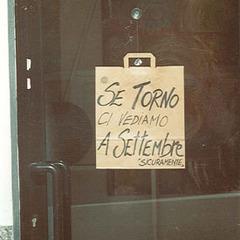 SE TORNO
CI VEDIAMO
A SETTEMBRE
"SICURAMENTE"